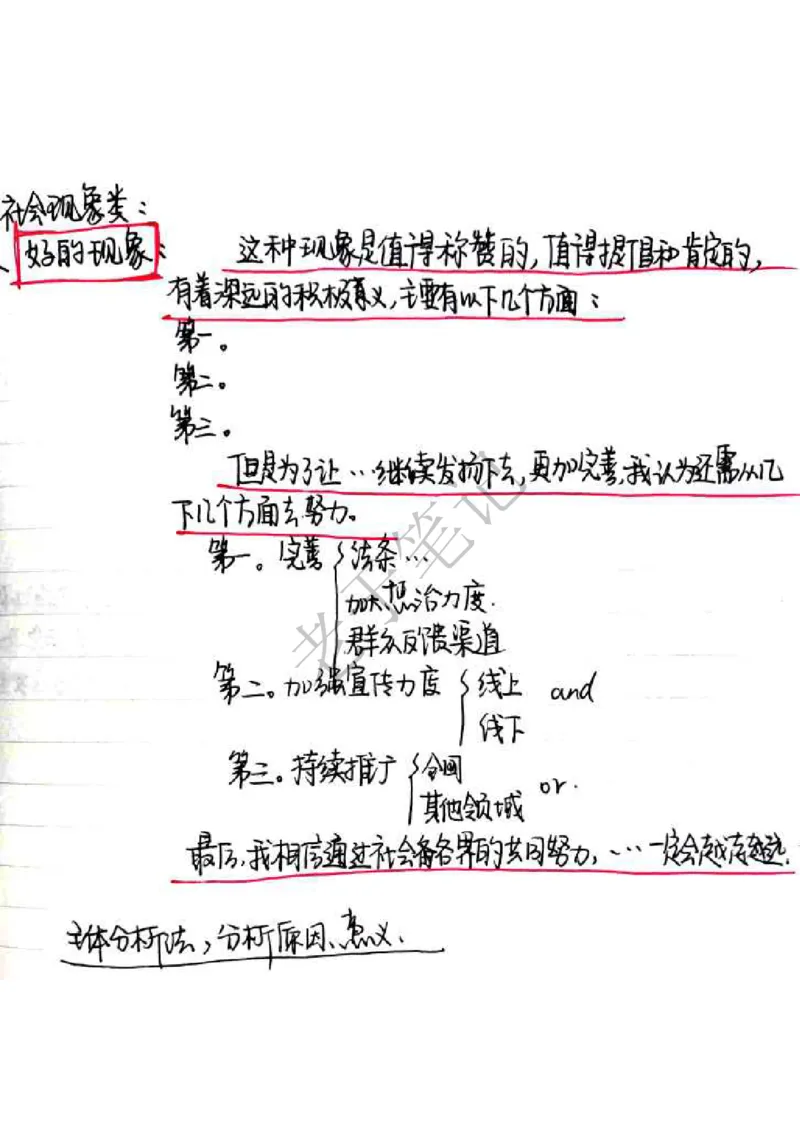 社会现象类：
好的现象： 这种现象是值得称赞的，值得提倡和肯定的，
有着深远的积极意义，主要有以下几个方面：
第一。
第二。
第三。
但是为了让…继续发扬下去，更加完善，我认为还需从以
下几个方面去努力。
第一。完善 法条…
加大惩治力度.
群众反馈渠道
第二。加强宣传力度 线上 and
线下
第三。持续推广 全国
其他领域 or.
最后，我相信通过社会各界的共同努力，…一定会越走越远.
主体分析法，分析原因、意义.
老于笔记